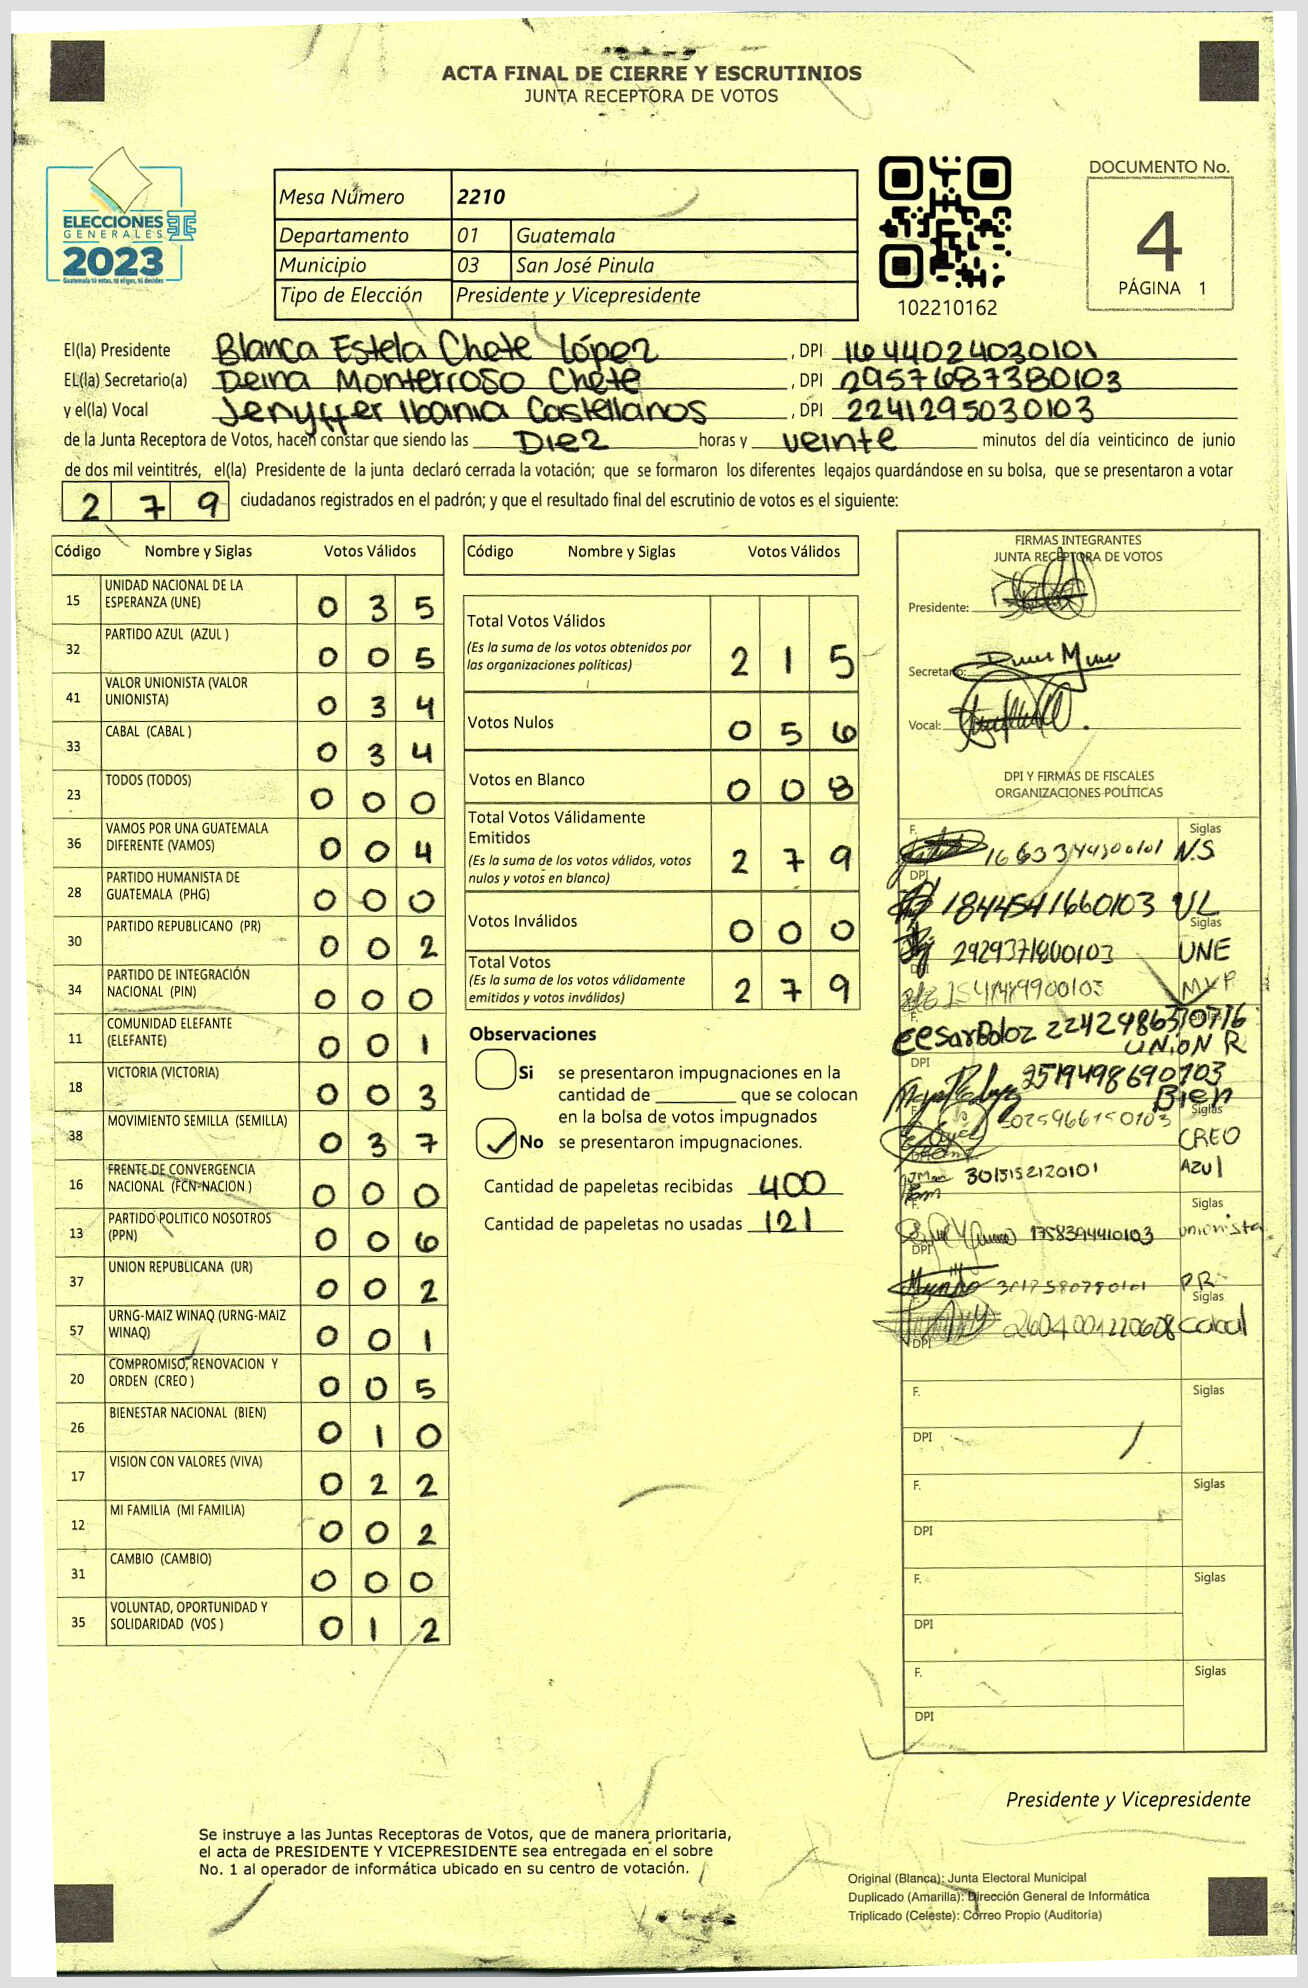 ACTA FINAL DE CIERRE Y ESCRUTINIOS
JUNTA RECEPTORA DE VOTOS
ELECCIONES
GENERALES
2023
Guatemala tú estas, tú eliges, tú decides
Mesa Número 2210
Departamento 01 Guatemala
Municipio 03 San José Pinula
Tipo de Elección Presidente y Vicepresidente
102210162
DOCUMENTO No.
4
PÁGINA 1
El(la) Presidente Blanca Estela Chete López, DPI 1644024030101
EL(la) Secretario(a) Deina Monterroso Chete, DPI 2957687380103
y el(la) Vocal Jenyffer Ibania Castellanos, DPI 2241295030103
de la Junta Receptora de Votos, hacen constar que siendo las Diez horas y veinte minutos del día veinticinco de junio
de dos mil veintitrés, el(la) Presidente de la junta declaró cerrada la votación; que se formaron los diferentes legajos guardándose en su bolsa, que se presentaron a votar
2 7 9 ciudadanos registrados en el padrón; y que el resultado final del escrutinio de votos es el siguiente:
Código Nombre y Siglas Votos Válidos
15 UNIDAD NACIONAL DE LA ESPERANZA (UNE) 0 3 5
32 PARTIDO AZUL (AZUL ) 0 0 5
41 VALOR UNIONISTA (VALOR UNIONISTA) 0 3 4
33 CABAL (CABAL ) 0 3 4
23 TODOS (TODOS) 0 0 0
36 VAMOS POR UNA GUATEMALA DIFERENTE (VAMOS) 0 0 4
28 PARTIDO HUMANISTA DE GUATEMALA (PHG) 0 0 0
30 PARTIDO REPUBLICANO (PR) 0 0 2
34 PARTIDO DE INTEGRACIÓN NACIONAL (PIN) 0 0 0
11 COMUNIDAD ELEFANTE (ELEFANTE) 0 0 1
18 VICTORIA (VICTORIA) 0 0 3
38 MOVIMIENTO SEMILLA (SEMILLA) 0 3 7
16 FRENTE DE CONVERGENCIA NACIONAL (FCN-NACION ) 0 0 0
13 PARTIDO POLITICO NOSOTROS (PPN) 0 0 6
37 UNION REPUBLICANA (UR) 0 0 2
57 URNG-MAIZ WINAQ (URNG-MAIZ WINAQ) 0 0 1
20 COMPROMISO, RENOVACION Y ORDEN (CREO ) 0 0 5
26 BIENESTAR NACIONAL (BIEN) 0 1 0
17 VISION CON VALORES (VIVA) 0 2 2
12 MI FAMILIA (MI FAMILIA) 0 0 2
31 CAMBIO (CAMBIO) 0 0 0
35 VOLUNTAD, OPORTUNIDAD Y SOLIDARIDAD (VOS ) 0 1 2
Código Nombre y Siglas Votos Válidos
Total Votos Válidos 2 1 5
(Es la suma de los votos obtenidos por
las organizaciones políticas)
Votos Nulos 0 5 6
Votos en Blanco 0 0 8
Total Votos Válidamente
Emitidos 2 7 9
(Es la suma de los votos válidos, votos
nulos y votos en blanco)
Votos Inválidos 0 0 0
Total Votos 2 7 9
(Es la suma de los votos válidamente
emitidos y votos inválidos)
Observaciones
Si se presentaron impugnaciones en la
cantidad de ________ que se colocan
en la bolsa de votos impugnados
No se presentaron impugnaciones.
Cantidad de papeletas recibidas 400
Cantidad de papeletas no usadas 121
FIRMAS INTEGRANTES
JUNTA RECEPTORA DE VOTOS
Presidente:
Secretario:
Vocal:
DPI Y FIRMAS DE FISCALES
ORGANIZACIONES POLÍTICAS
F. Siglas
N.S
DPI
1844541660103 UL
Siglas
2929371800103 UNE
DPI
MXP
F. Siglas
Cesar Boloz
UNION R
DPI
2519498690103
Bien
F. Siglas
CREO
DPI
3015152120101 AZUL
F. Siglas
1758394410103 unionista
DPI
PR
F. Siglas
2604001220608 Cabal
DPI
F. Siglas
DPI
F. Siglas
DPI
F. Siglas
DPI
F. Siglas
DPI
Presidente y Vicepresidente
Se instruye a las Juntas Receptoras de Votos, que de manera prioritaria,
el acta de PRESIDENTE Y VICEPRESIDENTE sea entregada en el sobre
No. 1 al operador de informática ubicado en su centro de votación.
Original (Blanca): Junta Electoral Municipal
Duplicado (Amarilla): Dirección General de Informática
Triplicado (Celeste): Correo Propio (Auditoría)